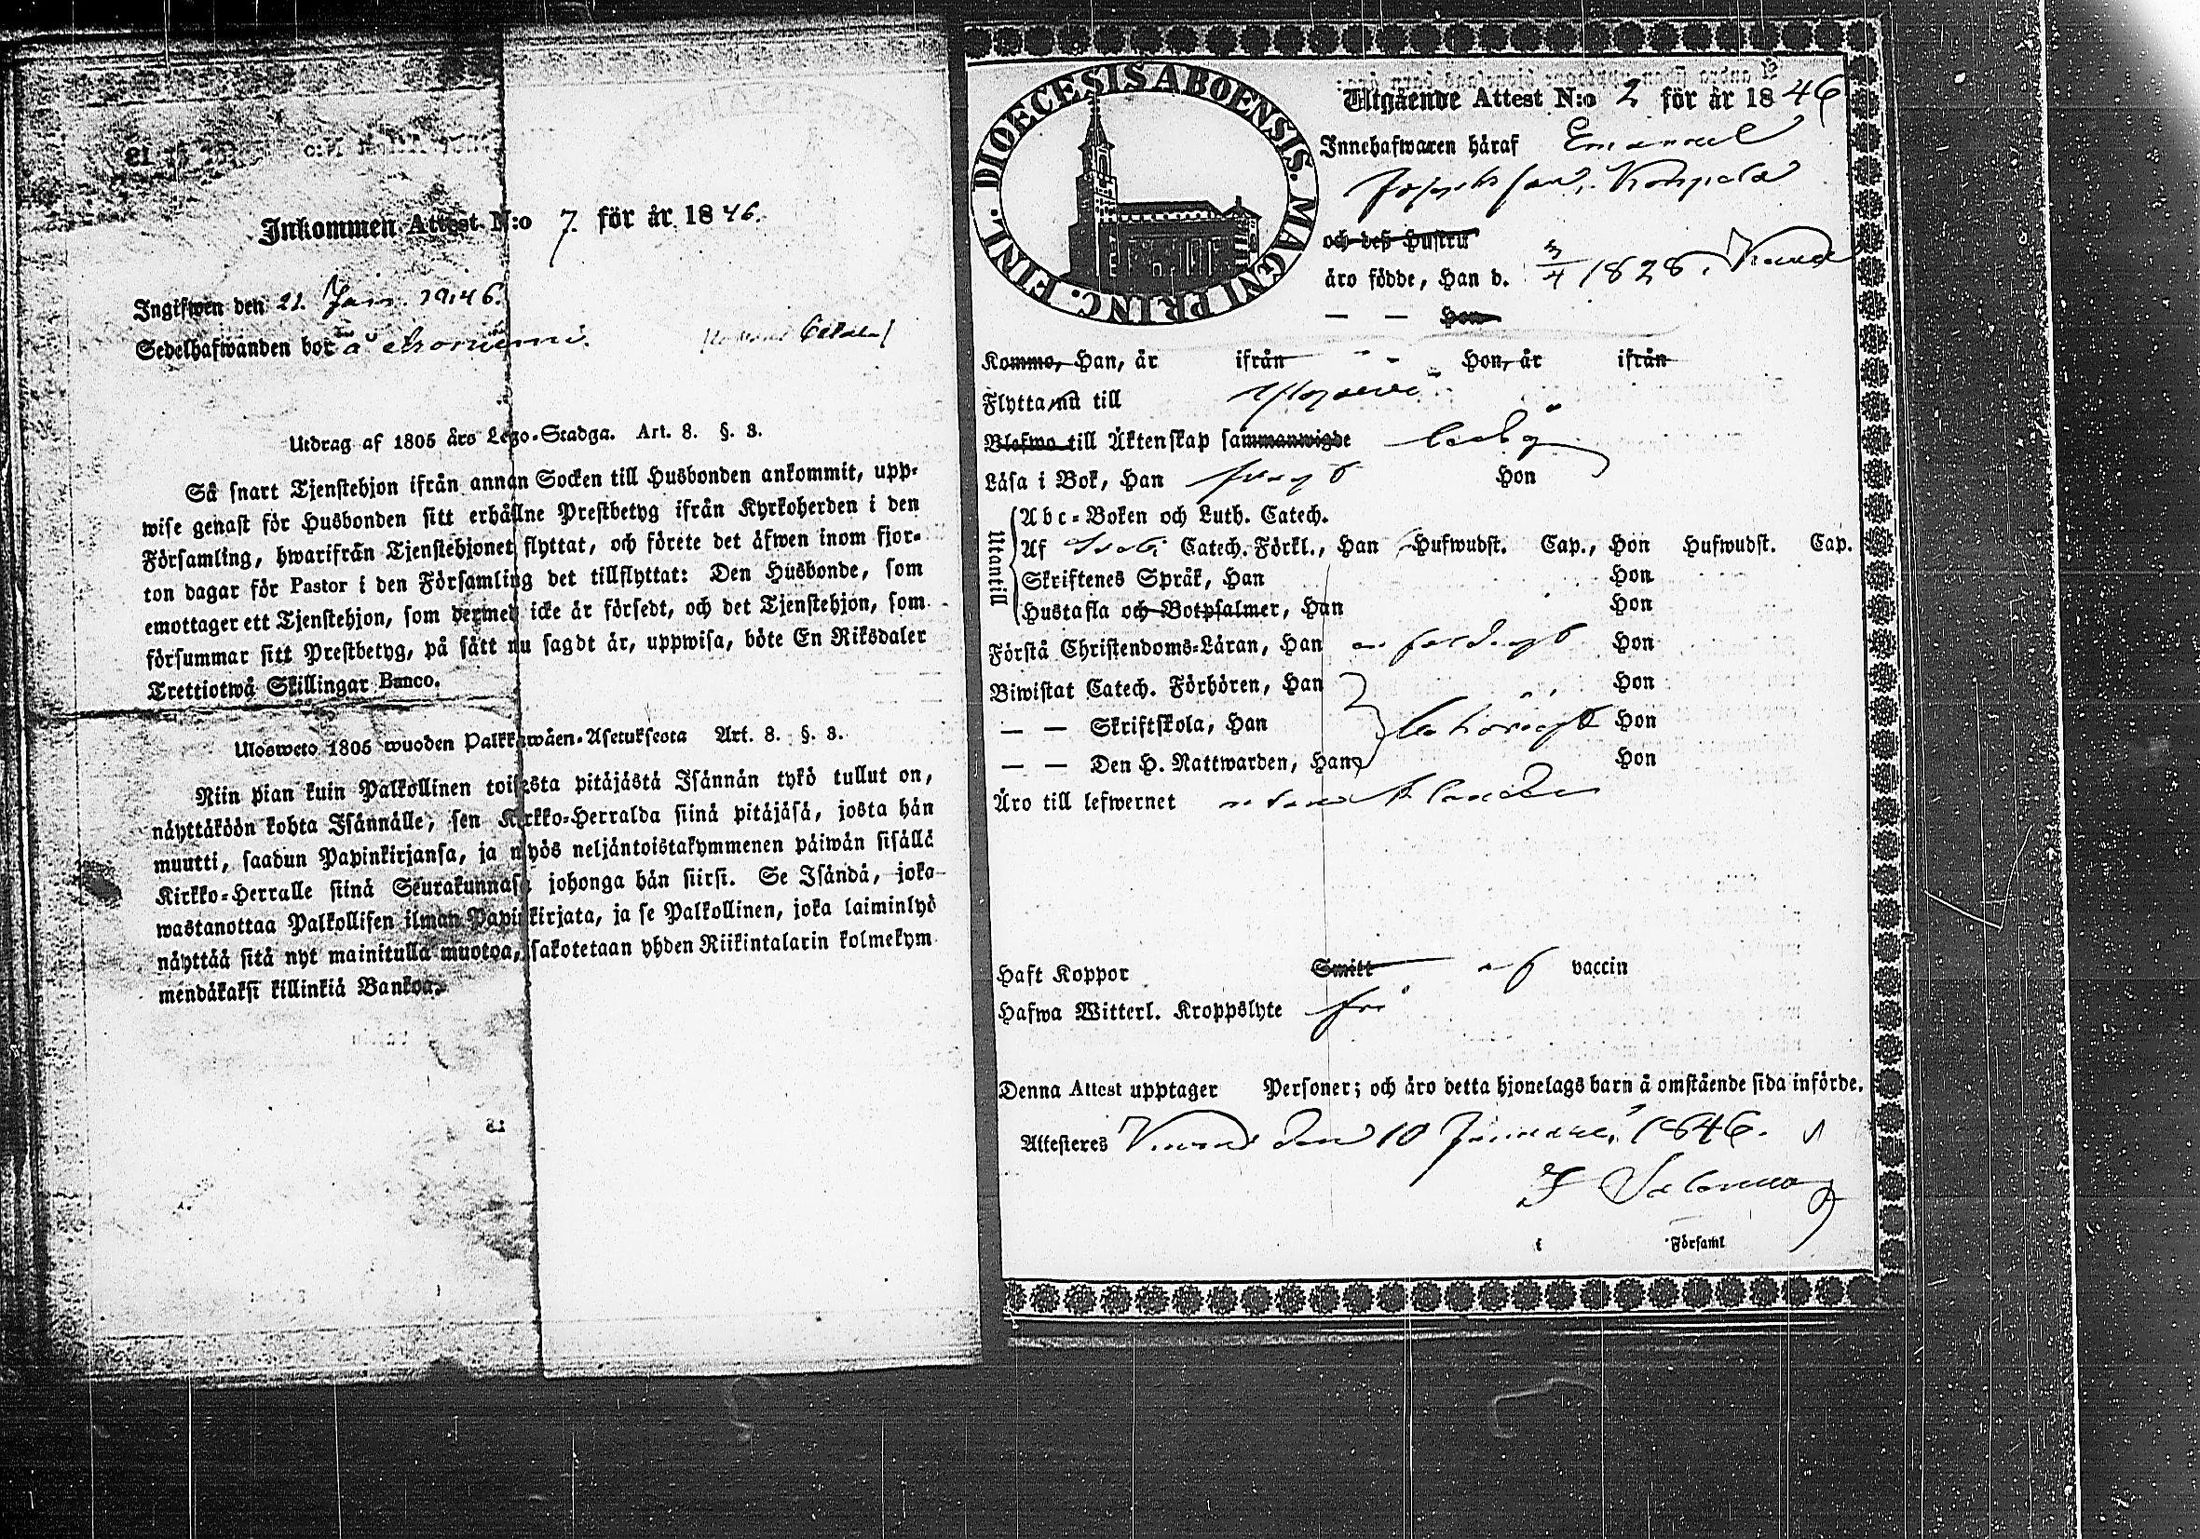 Inkommen Attest N:o 7. för år 1846.
Ingifwen den 21. Jan. 1846.
Sedelhafwanden bor å
Utdrag af 1805 års Lego-Stadga. Art. 8. §. 3.
Så snart Tjenstehjon ifrån annan Socken till Husbonden ankommit, upp-
wise genast för Husbonden sitt erhållne Prestbetyg ifrån Kyrkoherden i den
Församling, hwarifrån Tjenstehjonet flyttat, och förete det äfwen inom fjor-
ton dagar för Pastor i den Församling det tillflyttat: Den Husbonde, som
emottager ett Tjenstehjon, som dermed icke är försedt, och det Tjenstehjon, som
försummar sitt Prestbetyg, på sätt nu sagdt är, uppwisa, böte En Riksdaler
Trettiotwå Skillingar Banco.
Ulosweto 1805 wuoden Palkkawäen-Asetuksesta Art. 8. §. 3.
Niin pian kuin Palkollinen toisesta pitäjästä Isännän tykö tullut on,
näyttäköön kohta Isännälle, sen Kirkko-Herralda siinä pitäjäsä, josta hän
muutti, saadun Papinkirjansa, ja myös neljäntoistakymmenen päiwän sisällä
Kirkko-Herralle siinä Seurakunnasa johonga hän siirsi. Se Isändä, joka
wastanottaa Palkollisen ilman Papinkirjata, ja se Palkollinen, joka laiminlyö
näyttää sitä nyt mainitulla muotoa, sakotetaan yhden Riikintalarin kolmekym
mendäkaksi killinkiä Bankoa.
DIOECESIS ABOENSIS. MAGNI PRINC. FINL.
Utgående Attest N:o 2 för år 1846
Innehafwaren häraf Emanuel
Josephsson
och deß Hustru
äro födde, Han d. 1828.
— — Hon
Komme, Han, år ifrån Hon, år ifrån
Flytta nu till
Blefwo till Äktenskap sammanwigde ledig
Läsa i Bok, Han Hon
Utantill
Abc-Boken och Luth. Catech.
Af Catech. Förkl., Han Hufwudst. Cap., Hon Hufwudst. Cap.
Skriftenes Språk, Han Hon
Hustafla och Botpsalmer, Han Hon
Förstå Christendoms-Läran, Han Hon
Biwistat Catech. Förhören, Han Hon
— — Skriftskola, Han behörigt Hon
— — Den H. Nattwarden, Han Hon
Äro till lefwernet utan klander
Haft Koppor Smitt af vaccin
Hafwa Witterl. Kroppslyte fri
Denna Attest upptager Personer; och äro detta hjonelags barn å omstående sida införde.
Attesteres den 10 Januari 1846.
i Församl